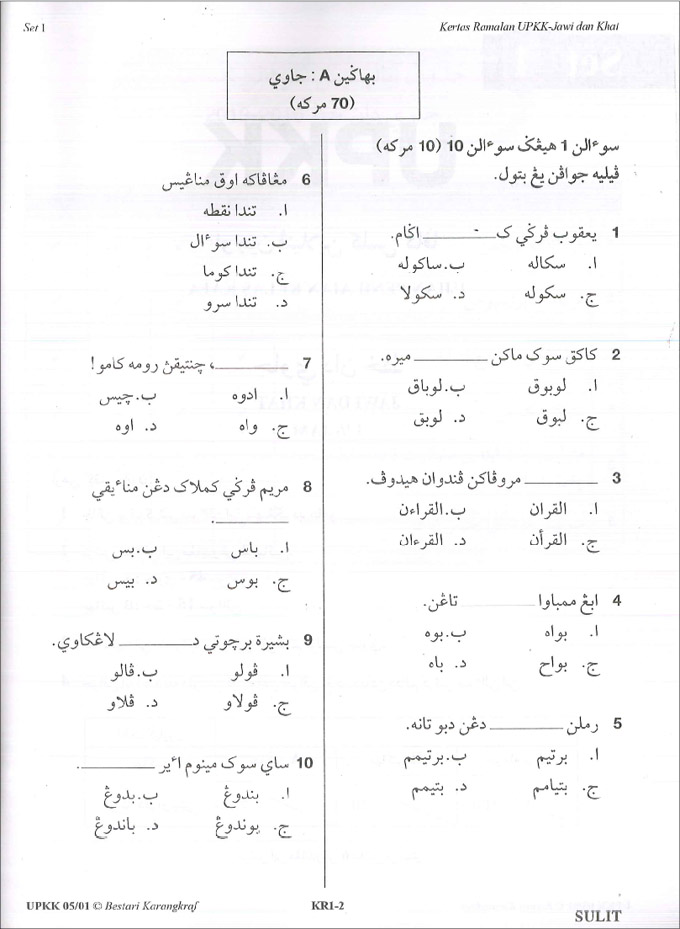 Set 1
Kertas Ramalan UPKK-Jawi dan Khat
بهاڬين A : جاوي
(70 مركه)
سوءالن 1 هيڠݢ سوءالن 10 (10 مركه)
ڤيليه جواڤن يڠ بتول.
1 يعقوب ڤرݢي ک ________ اݢام.
ا. سکاله
ب. ساکوله
ج. سکوله
د. سکولا
2 کاکق سوک ماکن ________ ميره.
ا. لوبوق
ب. لوباق
ج. لبوق
د. لوبق
3 ________ مروڤاکن ڤندوان هيدوڤ.
ا. القران
ب. القراءن
ج. القرأن
د. القرءان
4 ابڠ ممباوا ________ تاڠن.
ا. بواه
ب. بوه
ج. بواح
د. باه
5 رملن ________ دڠن دبو تانه.
ا. برتيم
ب. برتيمم
ج. بتيامم
د. بتيمم
6 مڠاڤاکه اوق مناڠيس
ا. تندا نقطه
ب. تندا سوءال
ج. تندا کوما
د. تندا سرو
7 ________، چنتيقڽ رومه کامو!
ا. ادوه
ب. چيس
ج. واه
د. اوه
8 مريم ڤرݢي کملاک دڠن منأيقي
________.
ا. باس
ب. بس
ج. بوس
د. بيس
9 بشيرة برچوتي د ________ لاڠکاوي.
ا. ڤولو
ب. ڤالو
ج. ڤولاو
د. ڤلاو
10 ساي سوک مينوم اءير ________.
ا. بندوڠ
ب. بدوڠ
ج. بوندوڠ
د. باندوڠ
UPKK 05/01 © Bestari Karangkraf
KR1-2
SULIT